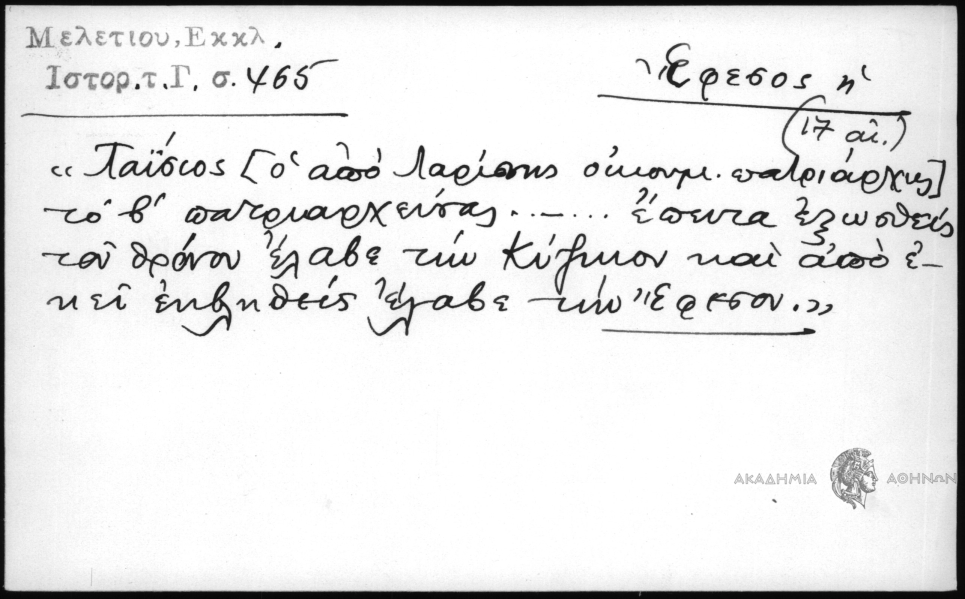 Μελετιου, Εκκλ.
Ιστορ. τ. Γ. σ. 465
Ἔφεσος ἡ
(17 αἰ.)
«Παΐσιος [ὁ ἀπὸ Λαρίσης οἰκουμ. πατριάρχης]
τὸ β' πατριαρχεύσας ...... ἔπειτα ἐξωσθείς
τοῦ θρόνου ἔλαβε τὴν Κύζικον καὶ ἀπὸ ἐ-
κεῖ ἐκβληθείς ἔλαβε τὴν Ἔφεσον.»
ΑΚΑΔΗΜΙΑ ΑΘΗΝΩΝ